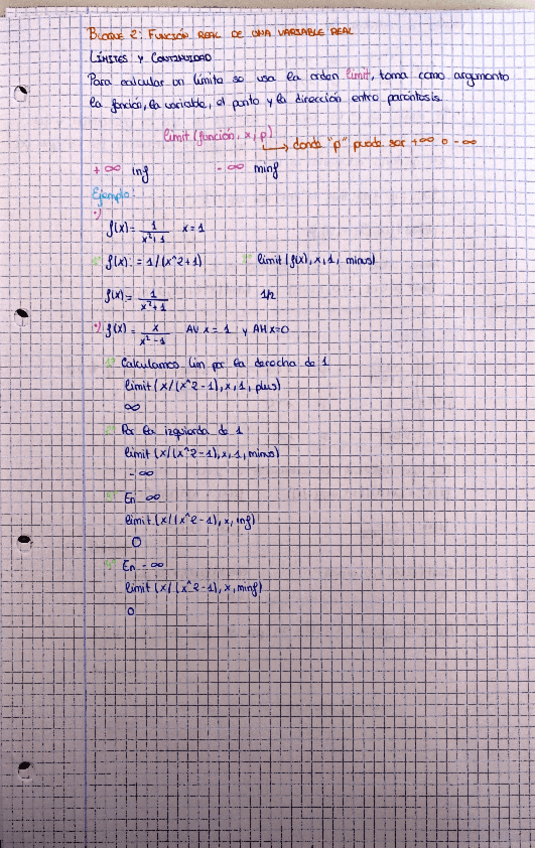 BLOQUE 2: FUNCIÓN REAL DE UNA VARIABLE REAL
LÍMITES Y CONTINUIDAD
Para calcular un límite se usa la orden limit, toma como argumento
la función, la variable, el punto y la dirección entre paréntesis.
limit (función, x, p)
→ donde "p" puede ser +∞ o -∞
+∞ inf -∞ minf
Ejemplo:
f(x) = 1/(x²+1) x=1
f(x) := 1/(x^2+1) limit (f(x), x, 1, minus)
f(x) = 1/(x²+1) 1/2
f(x) = x/(x²-1) AV x = 1 y AH x=0
Calculamos lim por la derecha de 1
limit (x/(x^2-1), x, 1, plus)
∞
Por la izquierda de 1
limit (x/(x^2-1), x, 1, minus)
-∞
En ∞
limit (x/(x^2-1), x, inf)
0
En -∞
limit (x/(x^2-1), x, minf)
0